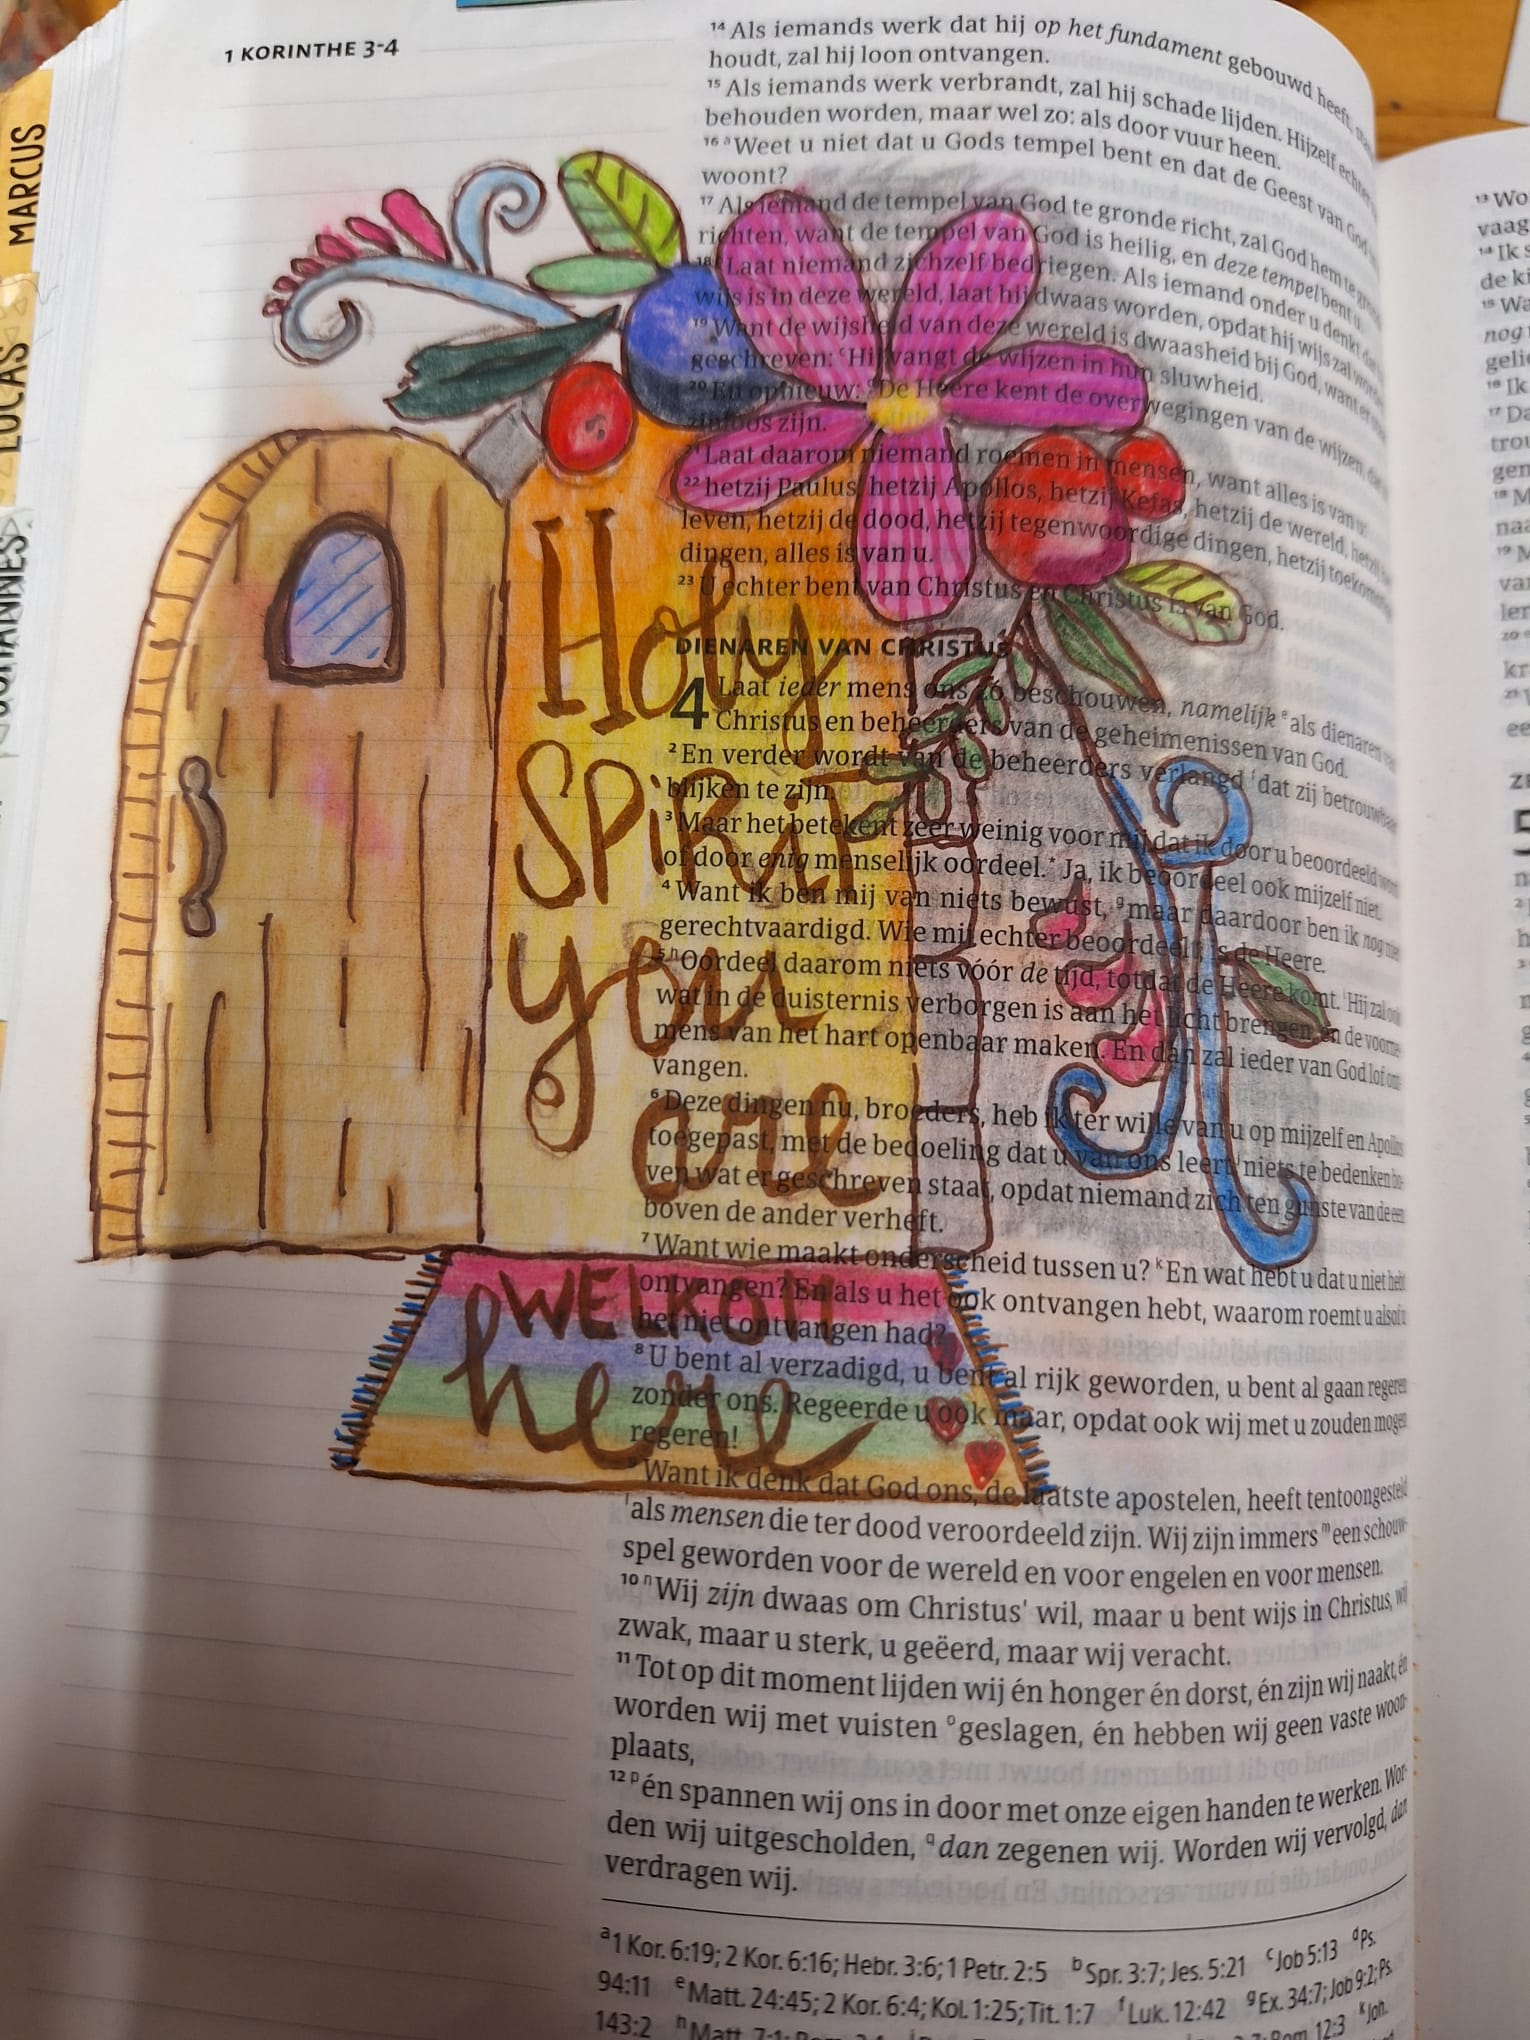 1 KORINTHE 3-4
MARCUS
LUCAS
JOHANNES
14 Als iemands werk dat hij op het fundament gebouwd heeft,
houdt, zal hij loon ontvangen.
15 Als iemands werk verbrandt, zal hij schade lijden. Hijzelf echter
behouden worden, maar wel zo: als door vuur heen.
16 a Weet u niet dat u Gods tempel bent en dat de Geest van God
woont?
17 Als iemand de tempel van God te gronde richt, zal God hem te
richten, want de tempel van God is heilig, en deze tempel bent u.
18 b Laat niemand zichzelf bedriegen. Als iemand onder u denkt dat
wijs is in deze wereld, laat hij dwaas worden, opdat hij wijs zal worden.
19 Want de wijsheid van deze wereld is dwaasheid bij God, want er
geschreven: c Hij vangt de wijzen in hun sluwheid.
20 En opnieuw: d De Heere kent de overwegingen van de wijzen, dat
zinloos zijn.
21 Laat daarom niemand roemen in mensen, want alles is van u:
22 hetzij Paulus, hetzij Apollos, hetzij Kefas, hetzij de wereld, hetzij
leven, hetzij de dood, hetzij tegenwoordige dingen, hetzij toekomstige
dingen, alles is van u.
23 U echter bent van Christus en Christus is van God.
DIENAREN VAN CHRISTUS
4 Laat ieder mens ons zó beschouwen, namelijk e als dienaren van
Christus en beheerders van de geheimenissen van God.
2 En verder wordt van de beheerders verlangd f dat zij betrouwbaar
blijken te zijn.
3 Maar het betekent zeer weinig voor mij dat ik door u beoordeeld word
of door enig menselijk oordeel.* Ja, ik beoordeel ook mijzelf niet.
4 Want ik ben mij van niets bewust, g maar daardoor ben ik nog niet
gerechtvaardigd. Wie mij echter beoordeelt, is de Heere.
5 h Oordeel daarom niets vóór de tijd, totdat de Heere komt. i Hij zal ook
wat in de duisternis verborgen is aan het licht brengen en de voorne
mens van het hart openbaar maken. En dan zal ieder van God lof ont-
vangen.
6 Deze dingen nu, broeders, heb ik ter wille van u op mijzelf en Apollos
toegepast, met de bedoeling dat u van ons leert j niets te bedenken bo-
ven wat er geschreven staat, opdat niemand zich ten gunste van de een
boven de ander verheft.
7 Want wie maakt onderscheid tussen u? k En wat hebt u dat u niet hebt
ontvangen? En als u het ook ontvangen hebt, waarom roemt u alsof u
het niet ontvangen had?
8 U bent al verzadigd, u bent al rijk geworden, u bent al gaan regeren
zonder ons. Regeerde u ook maar, opdat ook wij met u zouden mogen
regeren!
9 Want ik denk dat God ons, de laatste apostelen, heeft tentoongesteld
l als mensen die ter dood veroordeeld zijn. Wij zijn immers m een schouw-
spel geworden voor de wereld en voor engelen en voor mensen.
10 n Wij zijn dwaas om Christus' wil, maar u bent wijs in Christus, wij
zwak, maar u sterk, u geëerd, maar wij veracht.
11 Tot op dit moment lijden wij én honger én dorst, én zijn wij naakt, én
worden wij met vuisten o geslagen, én hebben wij geen vaste woon-
plaats,
12 p én spannen wij ons in door met onze eigen handen te werken. Wor-
den wij uitgescholden, q dan zegenen wij. Worden wij vervolgd, dan
verdragen wij.
a 1 Kor. 6:19; 2 Kor. 6:16; Hebr. 3:6; 1 Petr. 2:5 b Spr. 3:7; Jes. 5:21 c Job 5:13 d Ps.
94:11 e Matt. 24:45; 2 Kor. 6:4; Kol. 1:25; Tit. 1:7 f Luk. 12:42 g Ex. 34:7; Job 9:2; Ps.
143:2 h Matt. 7:1; Rom. 2:1 12:3 k Joh.
Holy
SPiRiT
you
are
WELKOM
here